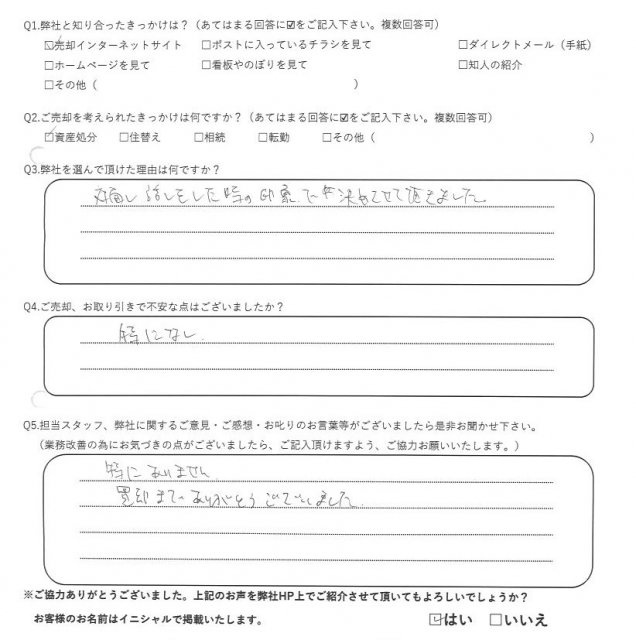 Q1.弊社と知り合ったきっかけは？（あてはまる回答に☑をご記入下さい。複数回答可）
☑売却インターネットサイト □ポストに入っているチラシを見て □ダイレクトメール（手紙）
□ホームページを見て □看板やのぼりを見て □知人の紹介
□その他（ ）
Q2.ご売却を考えられたきっかけは何ですか？（あてはまる回答に☑をご記入下さい。複数回答可）
☑資産処分 □住替え □相続 □転勤 □その他（ ）
Q3.弊社を選んで頂けた理由は何ですか？
対面し話しをした時の印象で決めさせて頂きました。
Q4.ご売却、お取り引きで不安な点はございましたか？
特になし
Q5.担当スタッフ、弊社に関するご意見・ご感想・お叱りのお言葉等がございましたら是非お聞かせ下さい。
（業務改善の為にお気づきの点がございましたら、ご記入頂けますよう、ご協力お願いいたします。）
特にありません
売却までありがとうございました
※ご協力ありがとうございました。上記のお声を弊社HP上でご紹介させて頂いてもよろしいでしょうか？
お客様のお名前はイニシャルで掲載いたします。 ☑はい □いいえ